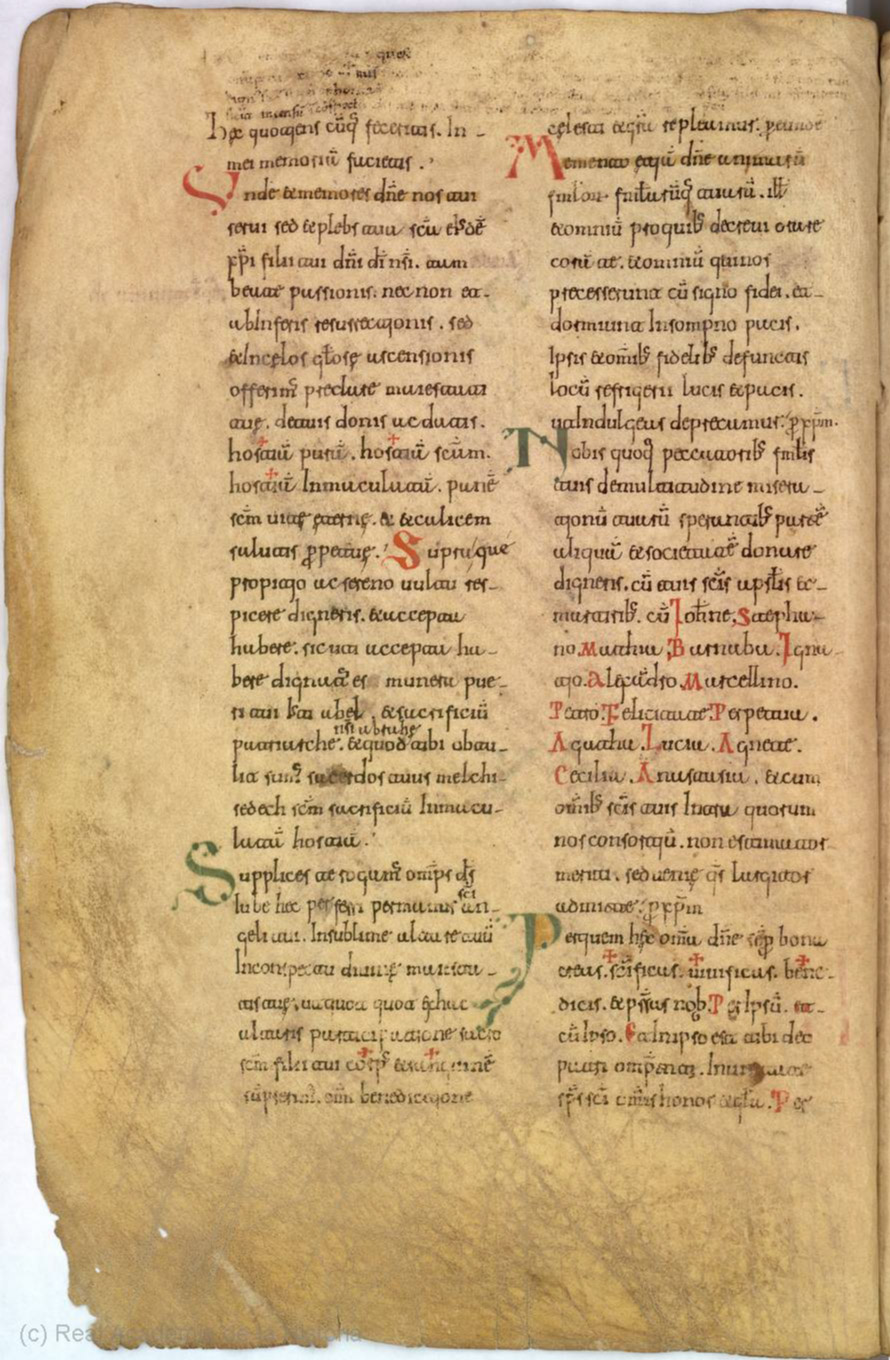 hec quotiens cūq; feceritis. In
mei memoriā facietis.
Unde & memores dñe nos tui
serui sed & plebs tua scā eiusdē
xp̄i filii tui dñi dī nr̄i. tam
beate passionis. nec non et
ab Inferis resurrectionis. sed
& In celos glose ascensionis
offerim preclare maiestati
tue. de tuis donis ac datis.
hostiā purā. hostiā scām.
hostiā Inmaculatā. panē
scm uite eterne. & & calicem
salutis ppetue. Supra que
propitio ac sereno uultu res
picere digneris. & accepta
habere. sicuti accepta ha
bere dignatus es munera pue
ri tui iusti abel. & sacrificiū
nr̄i abrahe
patriarche. & quod tibi obtu
lit summus sacerdos tuus melchi
sedech scm sacrificiū Inmacu
latā hostiā.
Supplices te rogamus omps ds
Iube hec perferri per manus sci an
geli tui. In sublime altare tuū
In conspectu diuine maiesta
tis tue. ut quot quot ex hac
altaris participatione sacro
scm filii tui corp & sanguinē
sūpserim. om̄i benedictione
celesti & gr̄a repleamur. per unde
Memento etiā dñe animarū
famlorū famlarūq; tuarū. ill
& omniū pro quib; decreui orare
cotū te. & omniū qui nos
precesserunt cū signo fidei. et
dormiunt In sompno pacis.
Ipsis & omib; fidelib; defunctis
locū refrigerii lucis & pacis.
ut Indulgeas deprecamur. p xpm.
Nobis quoq; peccatorib; famlis
tuis de multitudine misera
tionū tuarū sperantib; partē
aliquā & societatē donare
digneris. cū tuis scīs apstlis &
martirib;. cū Iohne, Stepha
no. Mathia, Barnaba. Igna
tio. Alexādro. Marcellino.
Petro. Feliciatate Perpetua.
Agatha. Lucia. Agnete.
Cecilia. Anastasia. & cum
omib; scīs tuis Intra quorum
nos consortiū. non estimator
meriti. sed uenie qs largitor
admitte. p xpm
Per quem hec omia dñe sēp bona
creas. scīficas. uiuificas. bene
dicis. & pr̄stas nob. Per Ipsū. et
cū Ipso. Et In ipso est tibi deo
patri omptenti. In unitate
sps sci omis honor & gla. Per